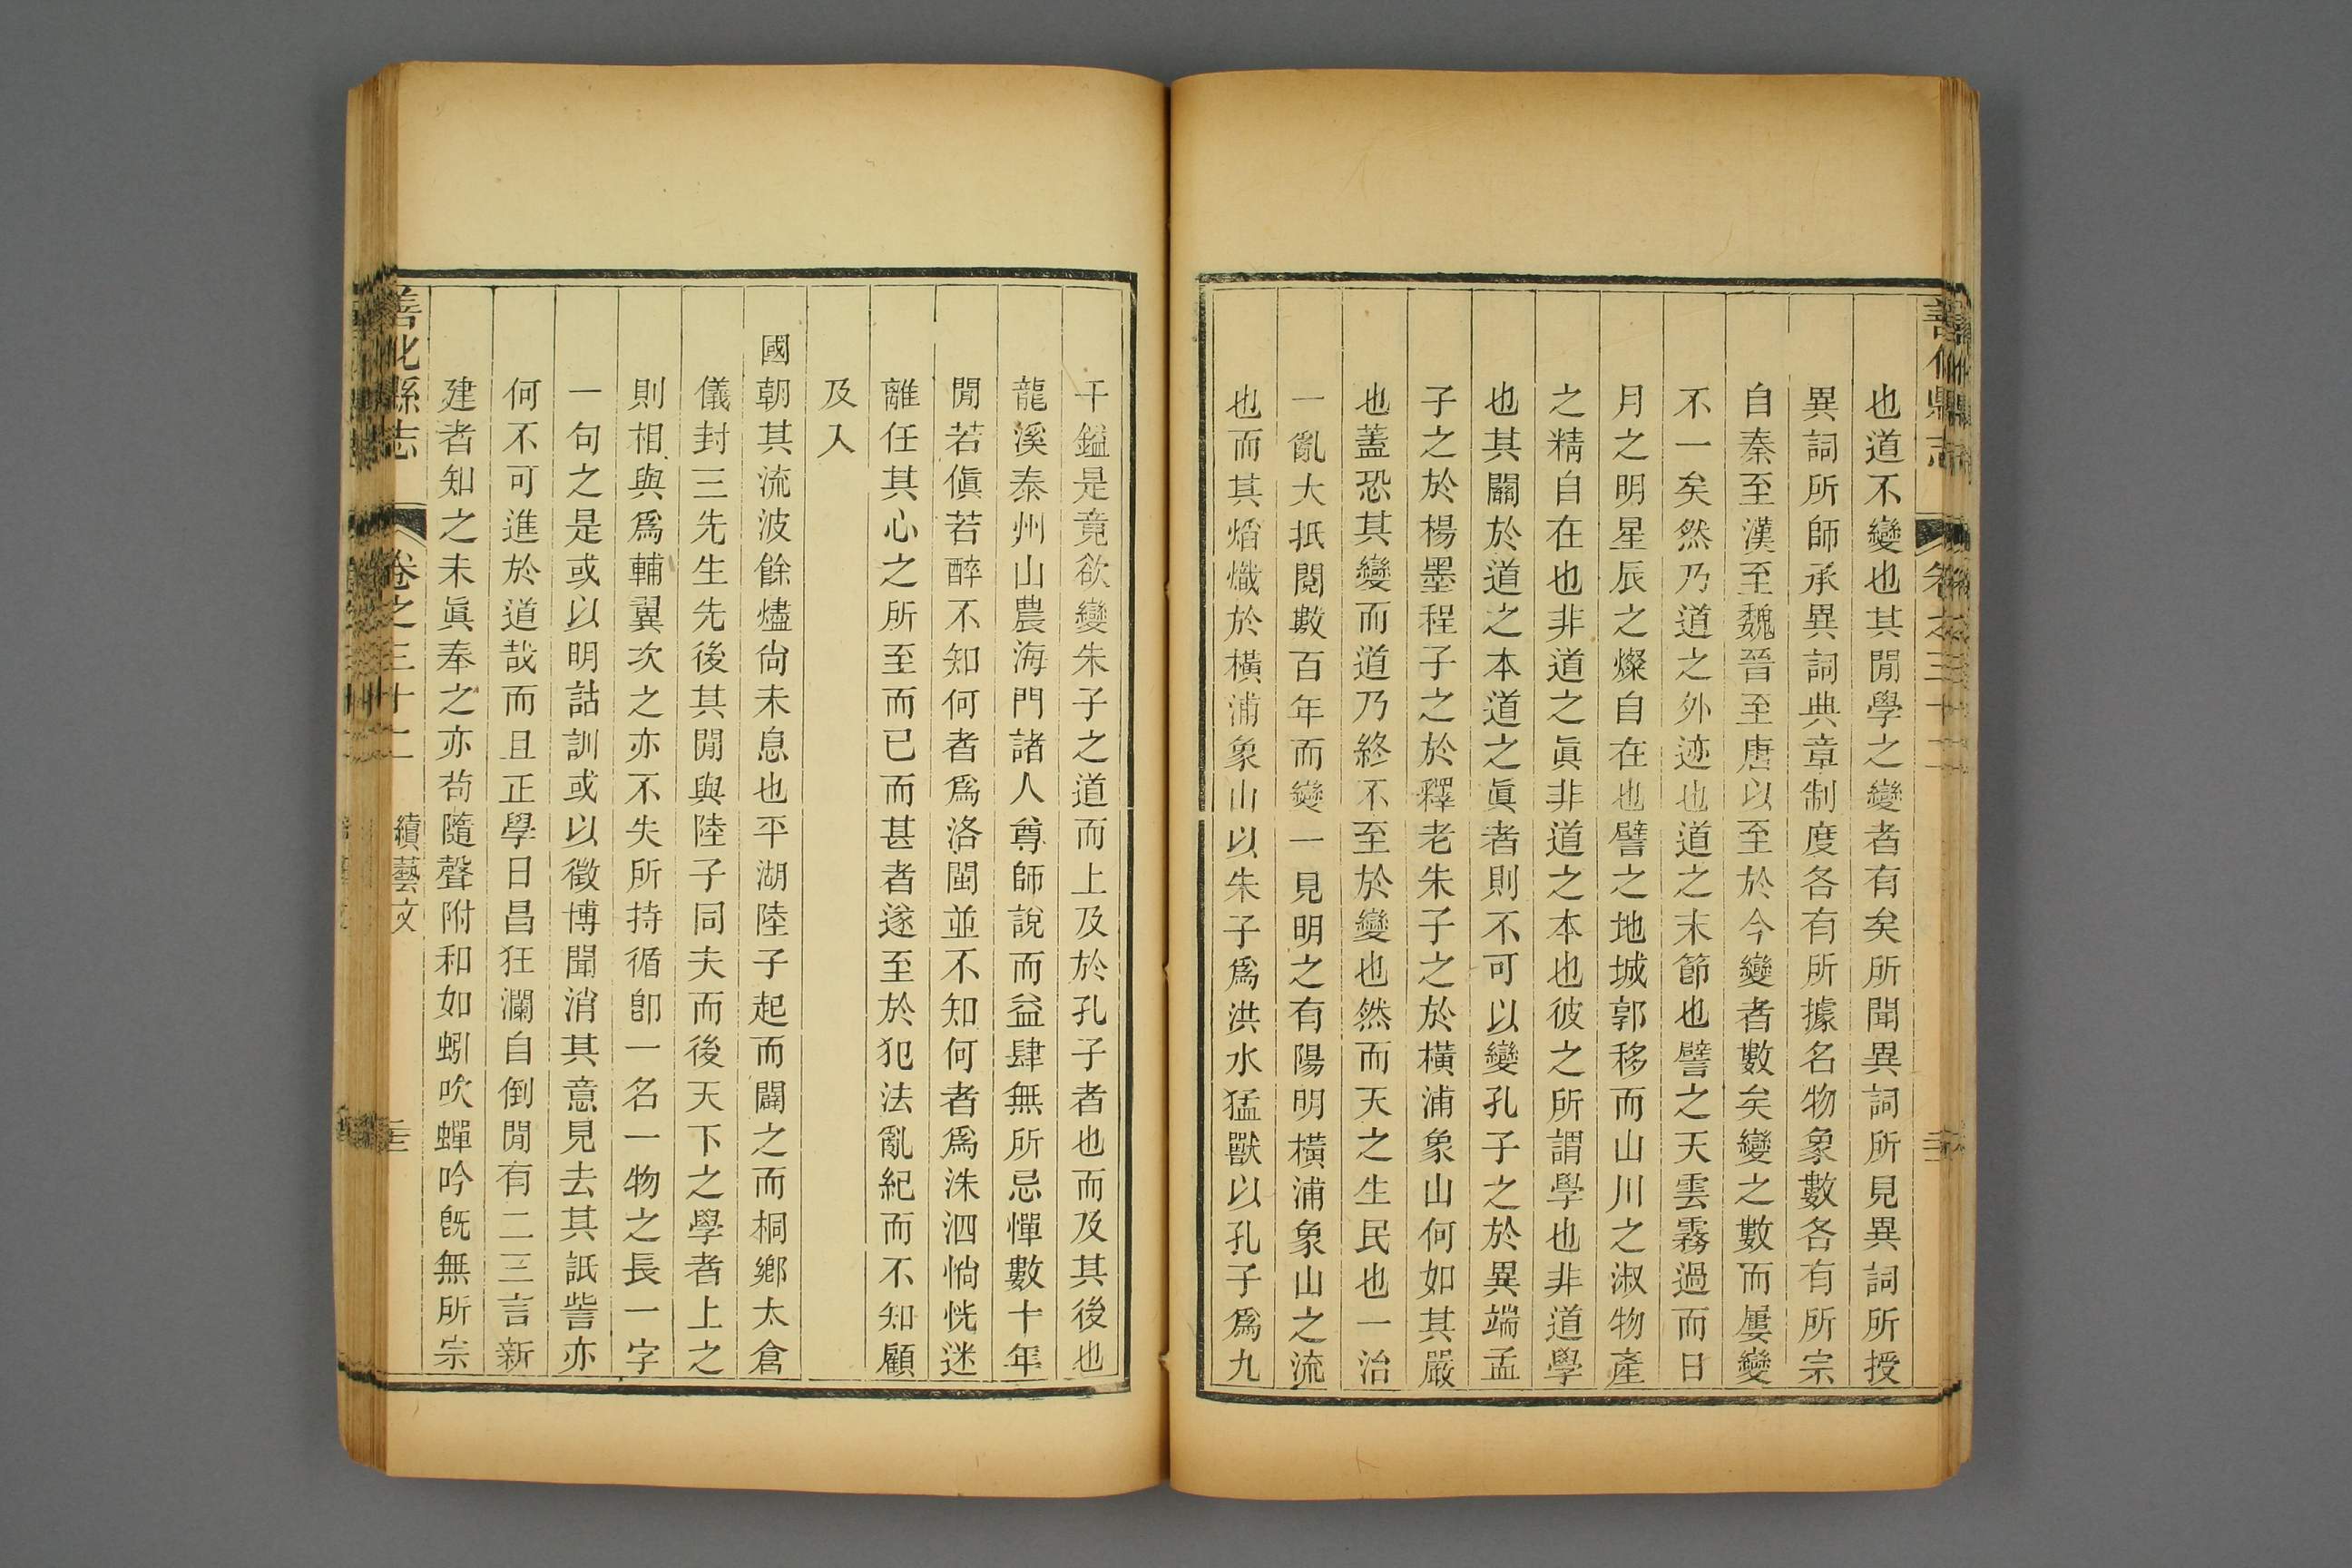 也道不變也其閒學之變者有矣所聞異詞所見異詞所授
異詞所師承異詞典章制度各有所據名物象數各有所宗
自秦至漢至魏晉至唐以至於今變者數矣變之數而屢變
不一矣然乃道之外迹也道之末節也譬之天雲霧過而日
月之明星辰之燦自在也譬之地城郭移而山川之淑物產
之精自在也非道之眞非道之本也彼之所謂學也非道學
也其關於道之本道之眞者則不可以變孔子之於異端孟
子之於楊墨程子之於釋老朱子之於橫浦象山何如其嚴
也蓋恐其變而道乃終不至於變也然而天之生民也一治
一亂大抵閱數百年而變一見明之有陽明橫浦象山之流
也而其熖熾於橫浦象山以朱子爲洪水猛獸以孔子爲九
千鎰是竟欲變朱子之道而上及於孔子者也而及其後也
龍溪泰州山農海門諸人尊師說而益肆無所忌憚數十年
閒若傎若醉不知何者爲洛閩並不知何者爲洙泗惝恍迷
離任其心之所至而已而甚者遂至於犯法亂紀而不知顧
及入
國朝其流波餘燼尙未息也平湖陸子起而闢之而桐鄉太倉
儀封三先生先後其閒與陸子同夫而後天下之學者上之
則相與爲輔翼次之亦不失所持循卽一名一物之長一字
一句之是或以明詁訓或以徵博聞消其意見去其詆訾亦
何不可進於道哉而且正學日昌狂瀾自倒閒有二三言新
建者知之未眞奉之亦苟隨聲附和如蚓吹蟬吟旣無所宗
善化縣志 卷之三十二 續藝文